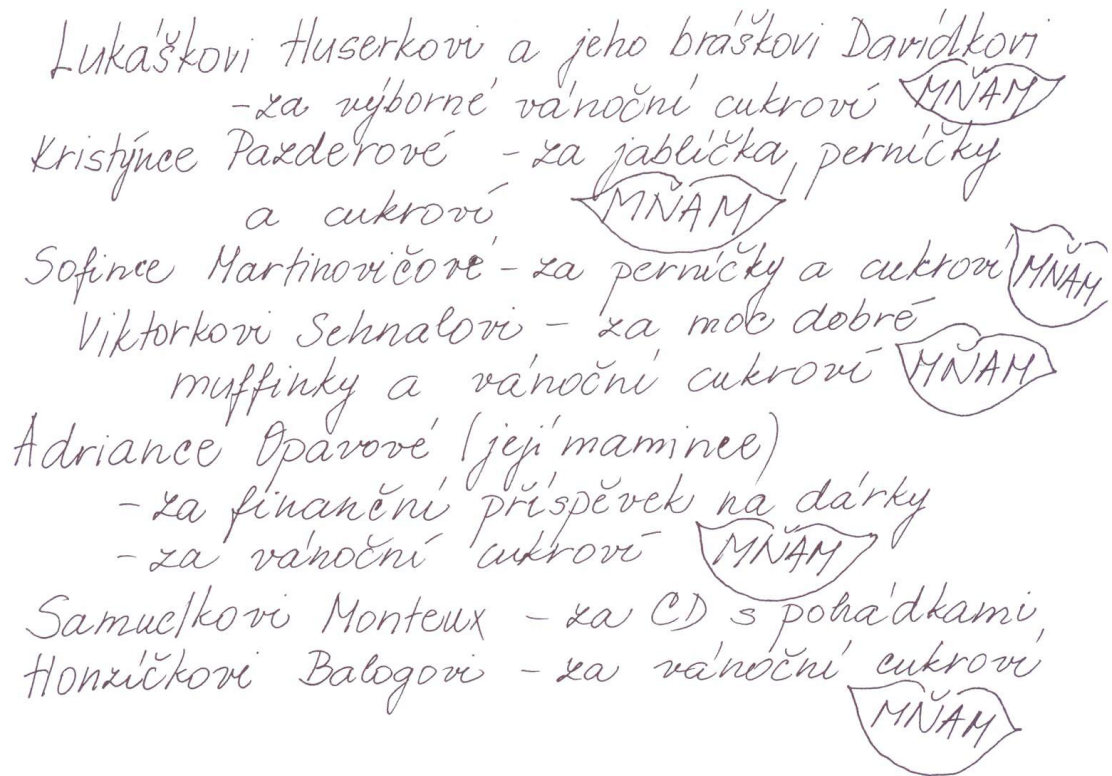 Lukáškovi Huserkovi a jeho bráškovi Davídkovi
- za výborné vánoční cukroví MŇAM
Kristýnce Pazderové - za jablíčka, perníčky
a cukroví MŇAM
Sofince Martinovičové - za perníčky a cukroví MŇAM
Viktorkovi Sehnalovi - za moc dobré
muffinky a vánoční cukroví MŇAM
Adriance Opavové (její mamince)
- za finanční příspěvek na dárky
- za vánoční cukroví MŇAM
Samuelkovi Monteux - za CD s pohádkami
Honzíčkovi Balogovi - za vánoční cukroví
MŇAM